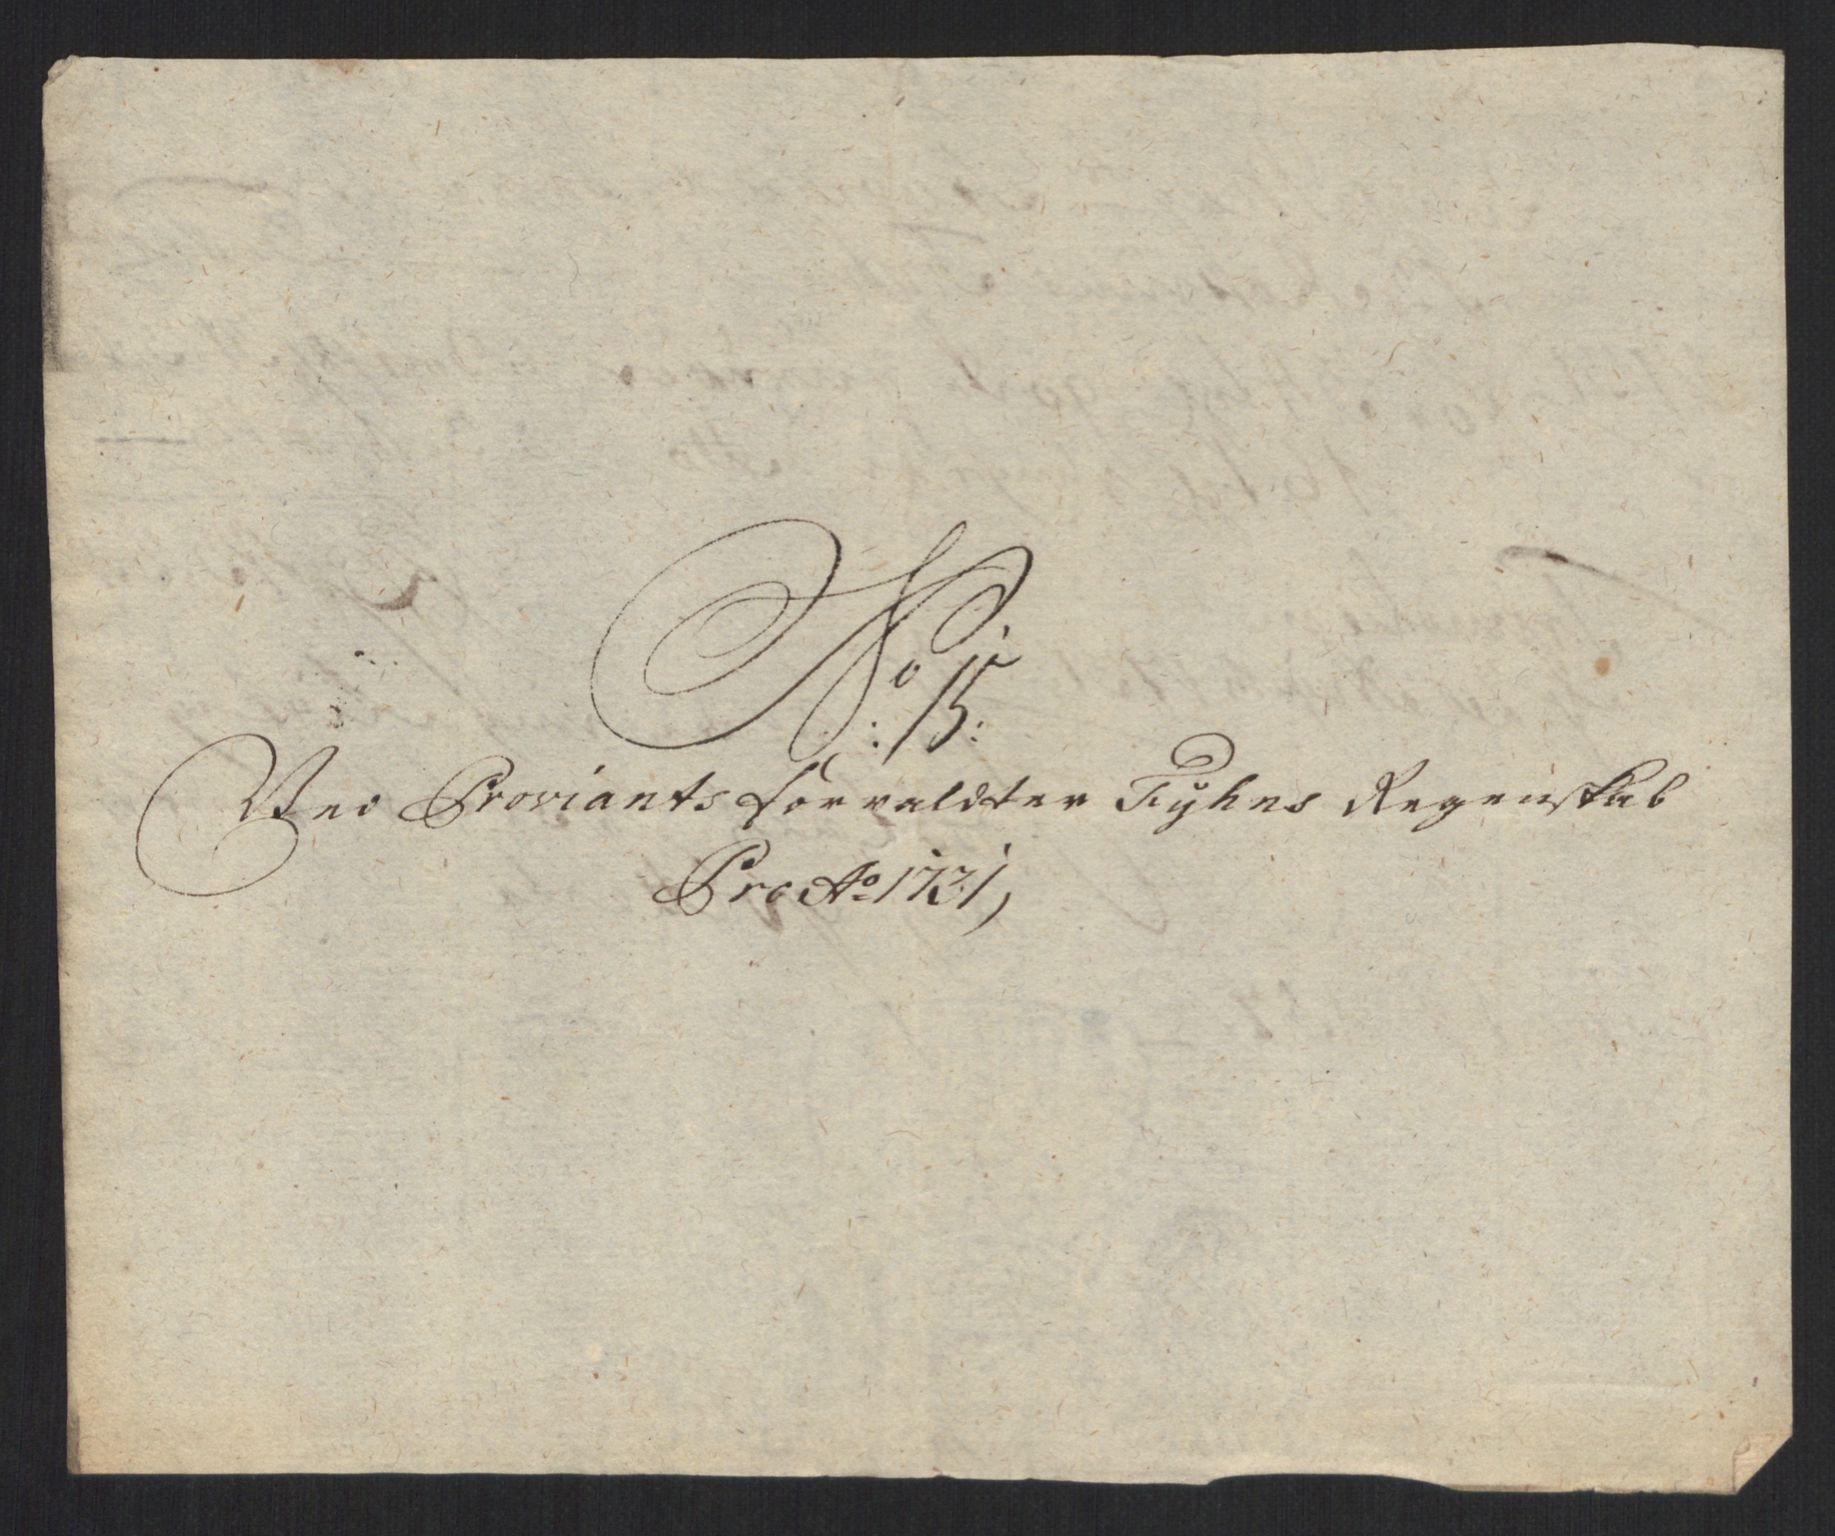 No: 15:
Ved Proviants forvaldter Fyhns Regenskab
Pro Ao 1721,